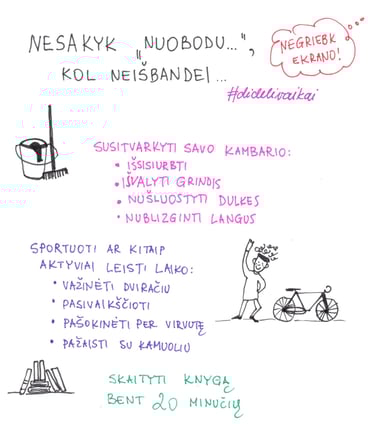 NESAKYK „NUOBODU...",
NEGRIEBK
EKRANO!
KOL NEIŠBANDEI...
#didelivaikai
SUSITVARKYTI SAVO KAMBARIO:
• IŠSISIURBTI
• IŠVALYTI GRINDIS
• NUŠLUOSTYTI DULKES
• NUBLIZGINTI LANGUS
SPORTUOTI AR KITAIP
AKTYVIAI LEISTI LAIKO:
• VAŽINĖTI DVIRAČIU
• PASIVAIKŠČIOTI
• PAŠOKINĖTI PER VIRVUTĘ
• PAŽAISTI SU KAMUOLIU
SKAITYTI KNYGĄ
BENT 20 MINUČIŲ